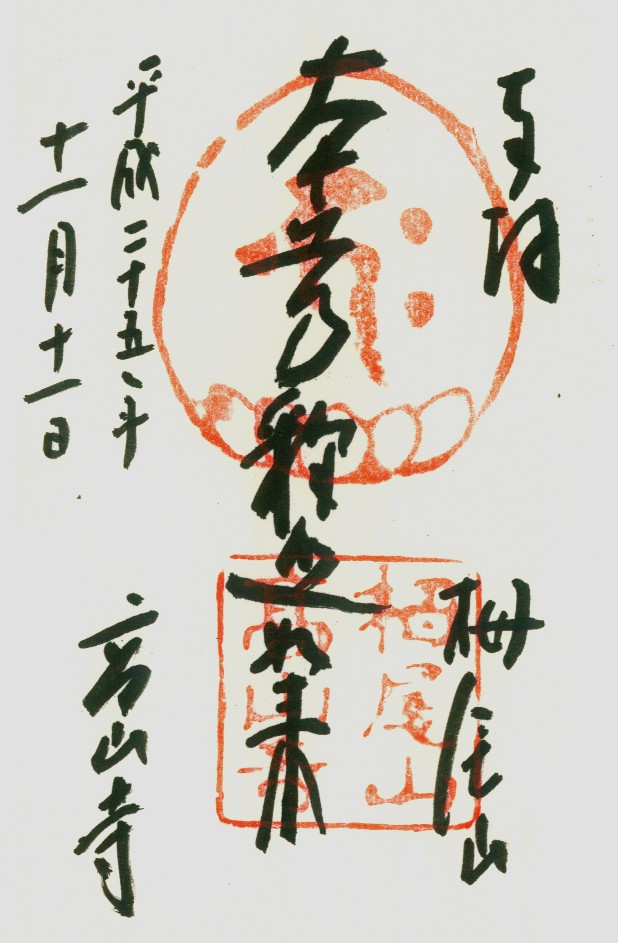 奉拝
栂尾山
本尊釈迦如来
栂尾山
高山寺
平成二十五年
十一月十一日
高山寺